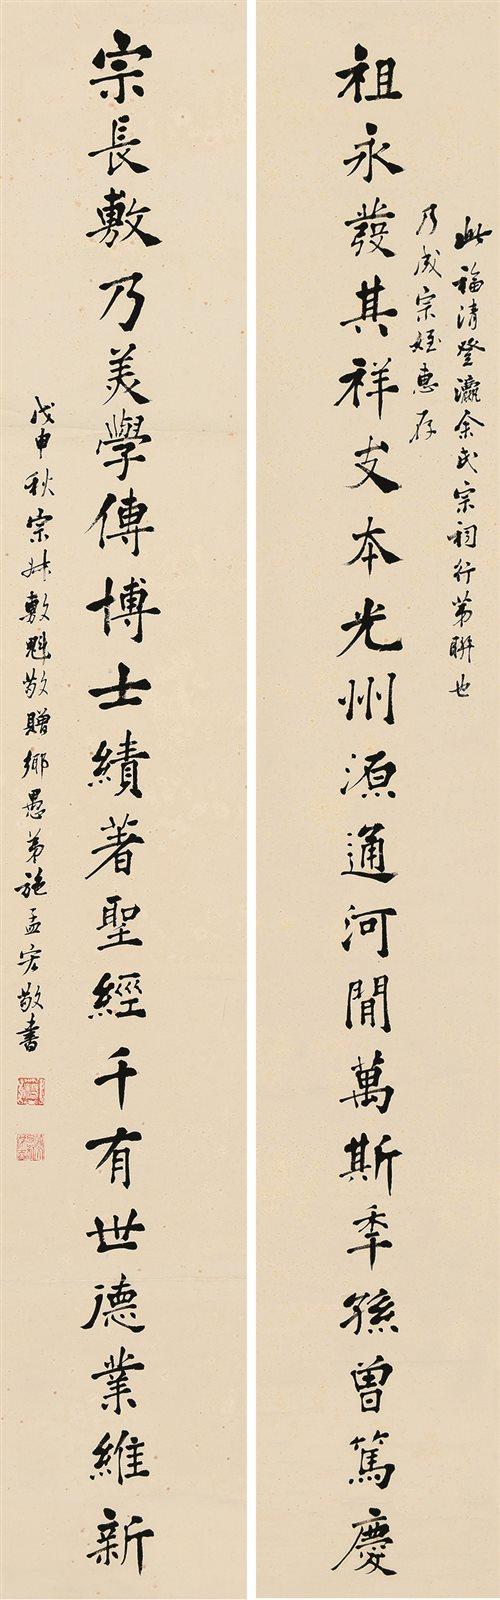 此福清登瀛余氏宗祠行第聯也
乃成宗姪惠存
祖永發其祥支本光州源通河間萬斯年孫曾篤慶
宗長敷乃美學傳博士績著聖經千有世德業維新
戊申秋宗妹敷魁敬贈鄉愚弟施孟宏敬書